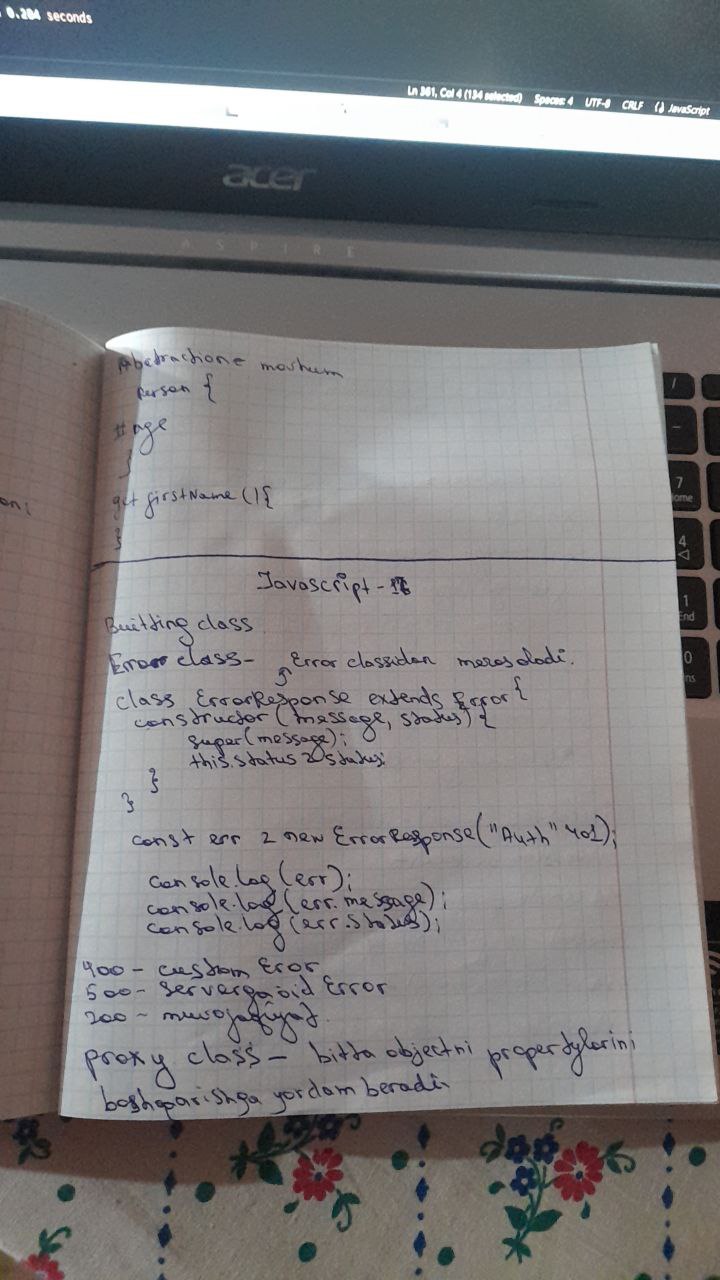 0.204 seconds
Ln 361, Col 4 (134 selected) Spaces: 4 UTF-8 CRLF {} JavaScript
acer
ASPIRE
Abstractione mavhum
Person {
#age
}
get firstName () {
}
Javascript - 16
Buitting class
Error class - Error classidan meros oladi.
class ErrorResponse extends Error {
constructor (message, status) {
super(message);
this.status = status;
}
}
const err = new ErrorResponse("Auth" 401);
console.log(err);
console.log(err.message);
console.log(err.status);
400 - custom Eror
500 - serverga oid Error
200 - muvofaqiyat
proxy class - bitta objectni propertylarini
boshqarishga yordam beradi
7
Home
4
1
End
0
Ins